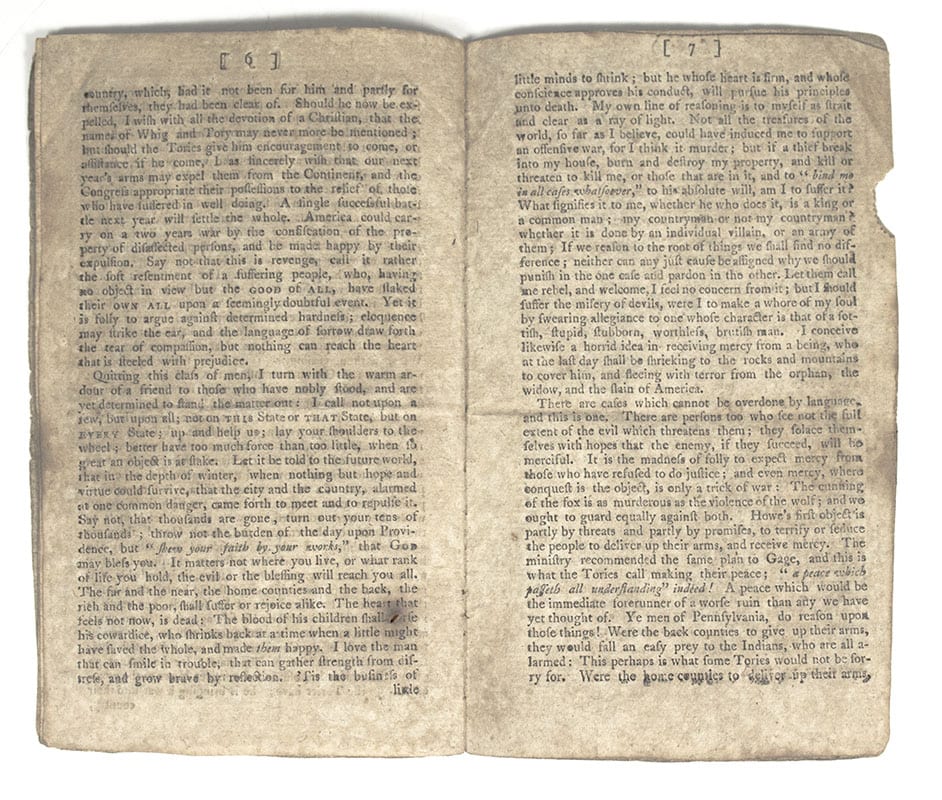 [ 6 ]
country, which, had it not been for him and partly for
themselves, they had been clear of. Should he now be ex-
pelled, I wish with all the devotion of a Christian, that the
names of Whig and Tory may never more be mentioned ;
but should the Tories give him encouragement to come, or
assistance if he come, I as sincerely wish that our next
year's arms may expel them from the Continent, and the
Congress appropriate their possessions to the relief of those
who have suffered in well doing. A single successful bat-
tle next year will settle the whole. America could car-
ry on a two years war by the confiscation of the pro-
perty of disaffected persons, and be made happy by their
expulsion. Say not that this is revenge, call it rather
the soft resentment of a suffering people, who, having
no object in view but the GOOD of ALL, have staked
their OWN ALL upon a seemingly doubtful event. Yet it
is folly to argue against determined hardness ; eloquence
may strike the ear, and the language of sorrow draw forth
the tear of compassion, but nothing can reach the heart
that is steeled with prejudice.
Quitting this class of men, I turn with the warm ar-
dour of a friend to those who have nobly stood, and are
yet determined to stand the matter out : I call not upon a
few, but upon all; not on THIS State or THAT State, but on
EVERY State ; up and help us ; lay your shoulders to the
wheel ; better have too much force than too little, when so
great an object is at stake. Let it be told to the future world,
that in the depth of winter, when nothing but hope and
virtue could survive, that the city and the country, alarmed
at one common danger, came forth to meet and to repulse it.
Say not, that thousands are gone, turn out your tens of
thousands ; throw not the burden of the day upon Provi-
dence, but "shew your faith by your works," that GOD
may bless you. It matters not where you live, or what rank
of life you hold, the evil or the blessing will reach you all.
The far and the near, the home counties and the back, the
rich and the poor, shall suffer or rejoice alike. The heart that
feels not now, is dead : The blood of his children shall curse
his cowardice, who shrinks back at a time when a little might
have saved the whole, and made them happy. I love the man
that can smile in trouble, that can gather strength from dis-
tress, and grow brave by reflection. 'Tis the business of
little
[ 7 ]
little minds to shrink ; but he whose heart is firm, and whose
conscience approves his conduct, will pursue his principles
unto death. My own line of reasoning is to myself as strait
and clear as a ray of light. Not all the treasures of the
world, so far as I believe, could have induced me to support
an offensive war, for I think it murder ; but if a thief break
into my house, burn and destroy my property, and kill or
threaten to kill me, or those that are in it, and to " bind me
in all cases whatsoever," to his absolute will, am I to suffer it ?
What signifies it to me, whether he who does it, is a king or
a common man ; my countryman or not my countryman ?
whether it is done by an individual villain, or an army of
them ; If we reason to the root of things we shall find no dif-
ference ; neither can any just cause be assigned why we should
punish in the one case and pardon in the other. Let them call
me rebel, and welcome, I feel no concern from it ; but I should
suffer the misery of devils, were I to make a whore of my soul
by swearing allegiance to one whose character is that of a sot-
tish, stupid, stubborn, worthless, brutish man. I conceive
likewise a horrid idea in receiving mercy from a being, who
at the last day shall be shrieking to the rocks and mountains
to cover him, and fleeing with terror from the orphan, the
widow, and the slain of America.
There are cases which cannot be overdone by language,
and this is one. There are persons too who see not the full
extent of the evil which threatens them ; they solace them-
selves with hopes that the enemy, if they succeed, will be
merciful. It is the madness of folly to expect mercy from
those who have refused to do justice ; and even mercy, where
conquest is the object, is only a trick of war : The cunning
of the fox is as murderous as the violence of the wolf ; and we
ought to guard equally against both. Howe's first object is
partly by threats and partly by promises, to terrify or seduce
the people to deliver up their arms, and receive mercy. The
ministry recommended the same plan to Gage, and this is
what the Tories call making their peace ; " a peace which
passeth all understanding" indeed ! A peace which would be
the immediate forerunner of a worse ruin than any we have
yet thought of. Ye men of Pennsylvania, do reason upon
those things! Were the back counties to give up their arms,
they would fall an easy prey to the Indians, who are all a-
larmed : This perhaps is what some Tories would not be sor-
ry for. Were the home counties to deliver up their arms,